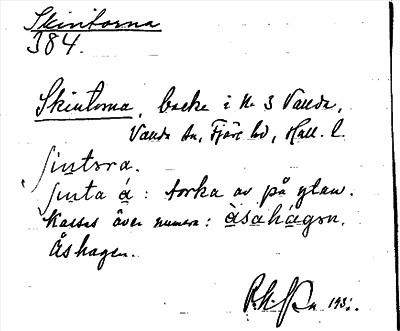 Skintorna
384.
Skintorna, backe i N. 3 Vallda,
Vallda sn, Fjäre hd, Hall. l.
ʃintɔra.
ʃinta á : torka av på ytan.
Kallas även numera : àsahágɔn.
Åshagen.
193